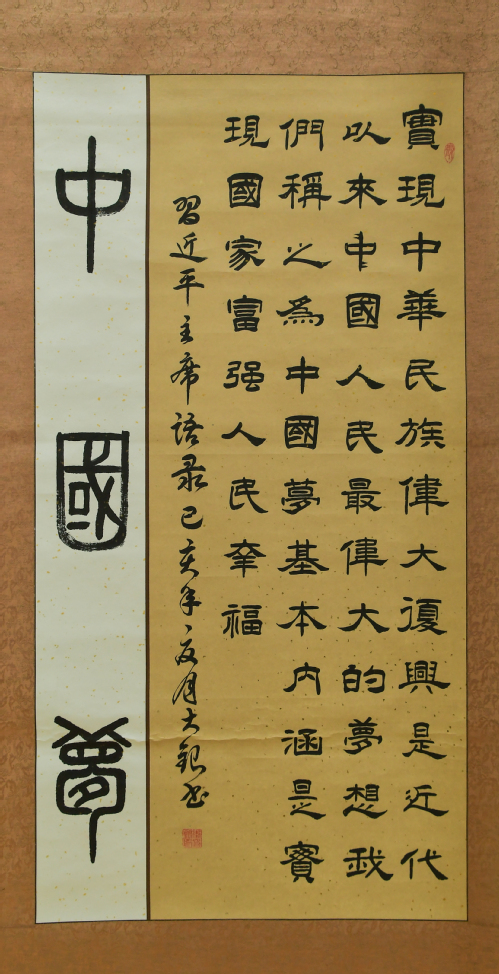 實現中華民族偉大復興是近代
以來中國人民最偉大的夢想我
們稱之為中國夢基本内涵是實
現國家富强人民幸福
習近平主席語录己亥年夏月大銀书
中國夢